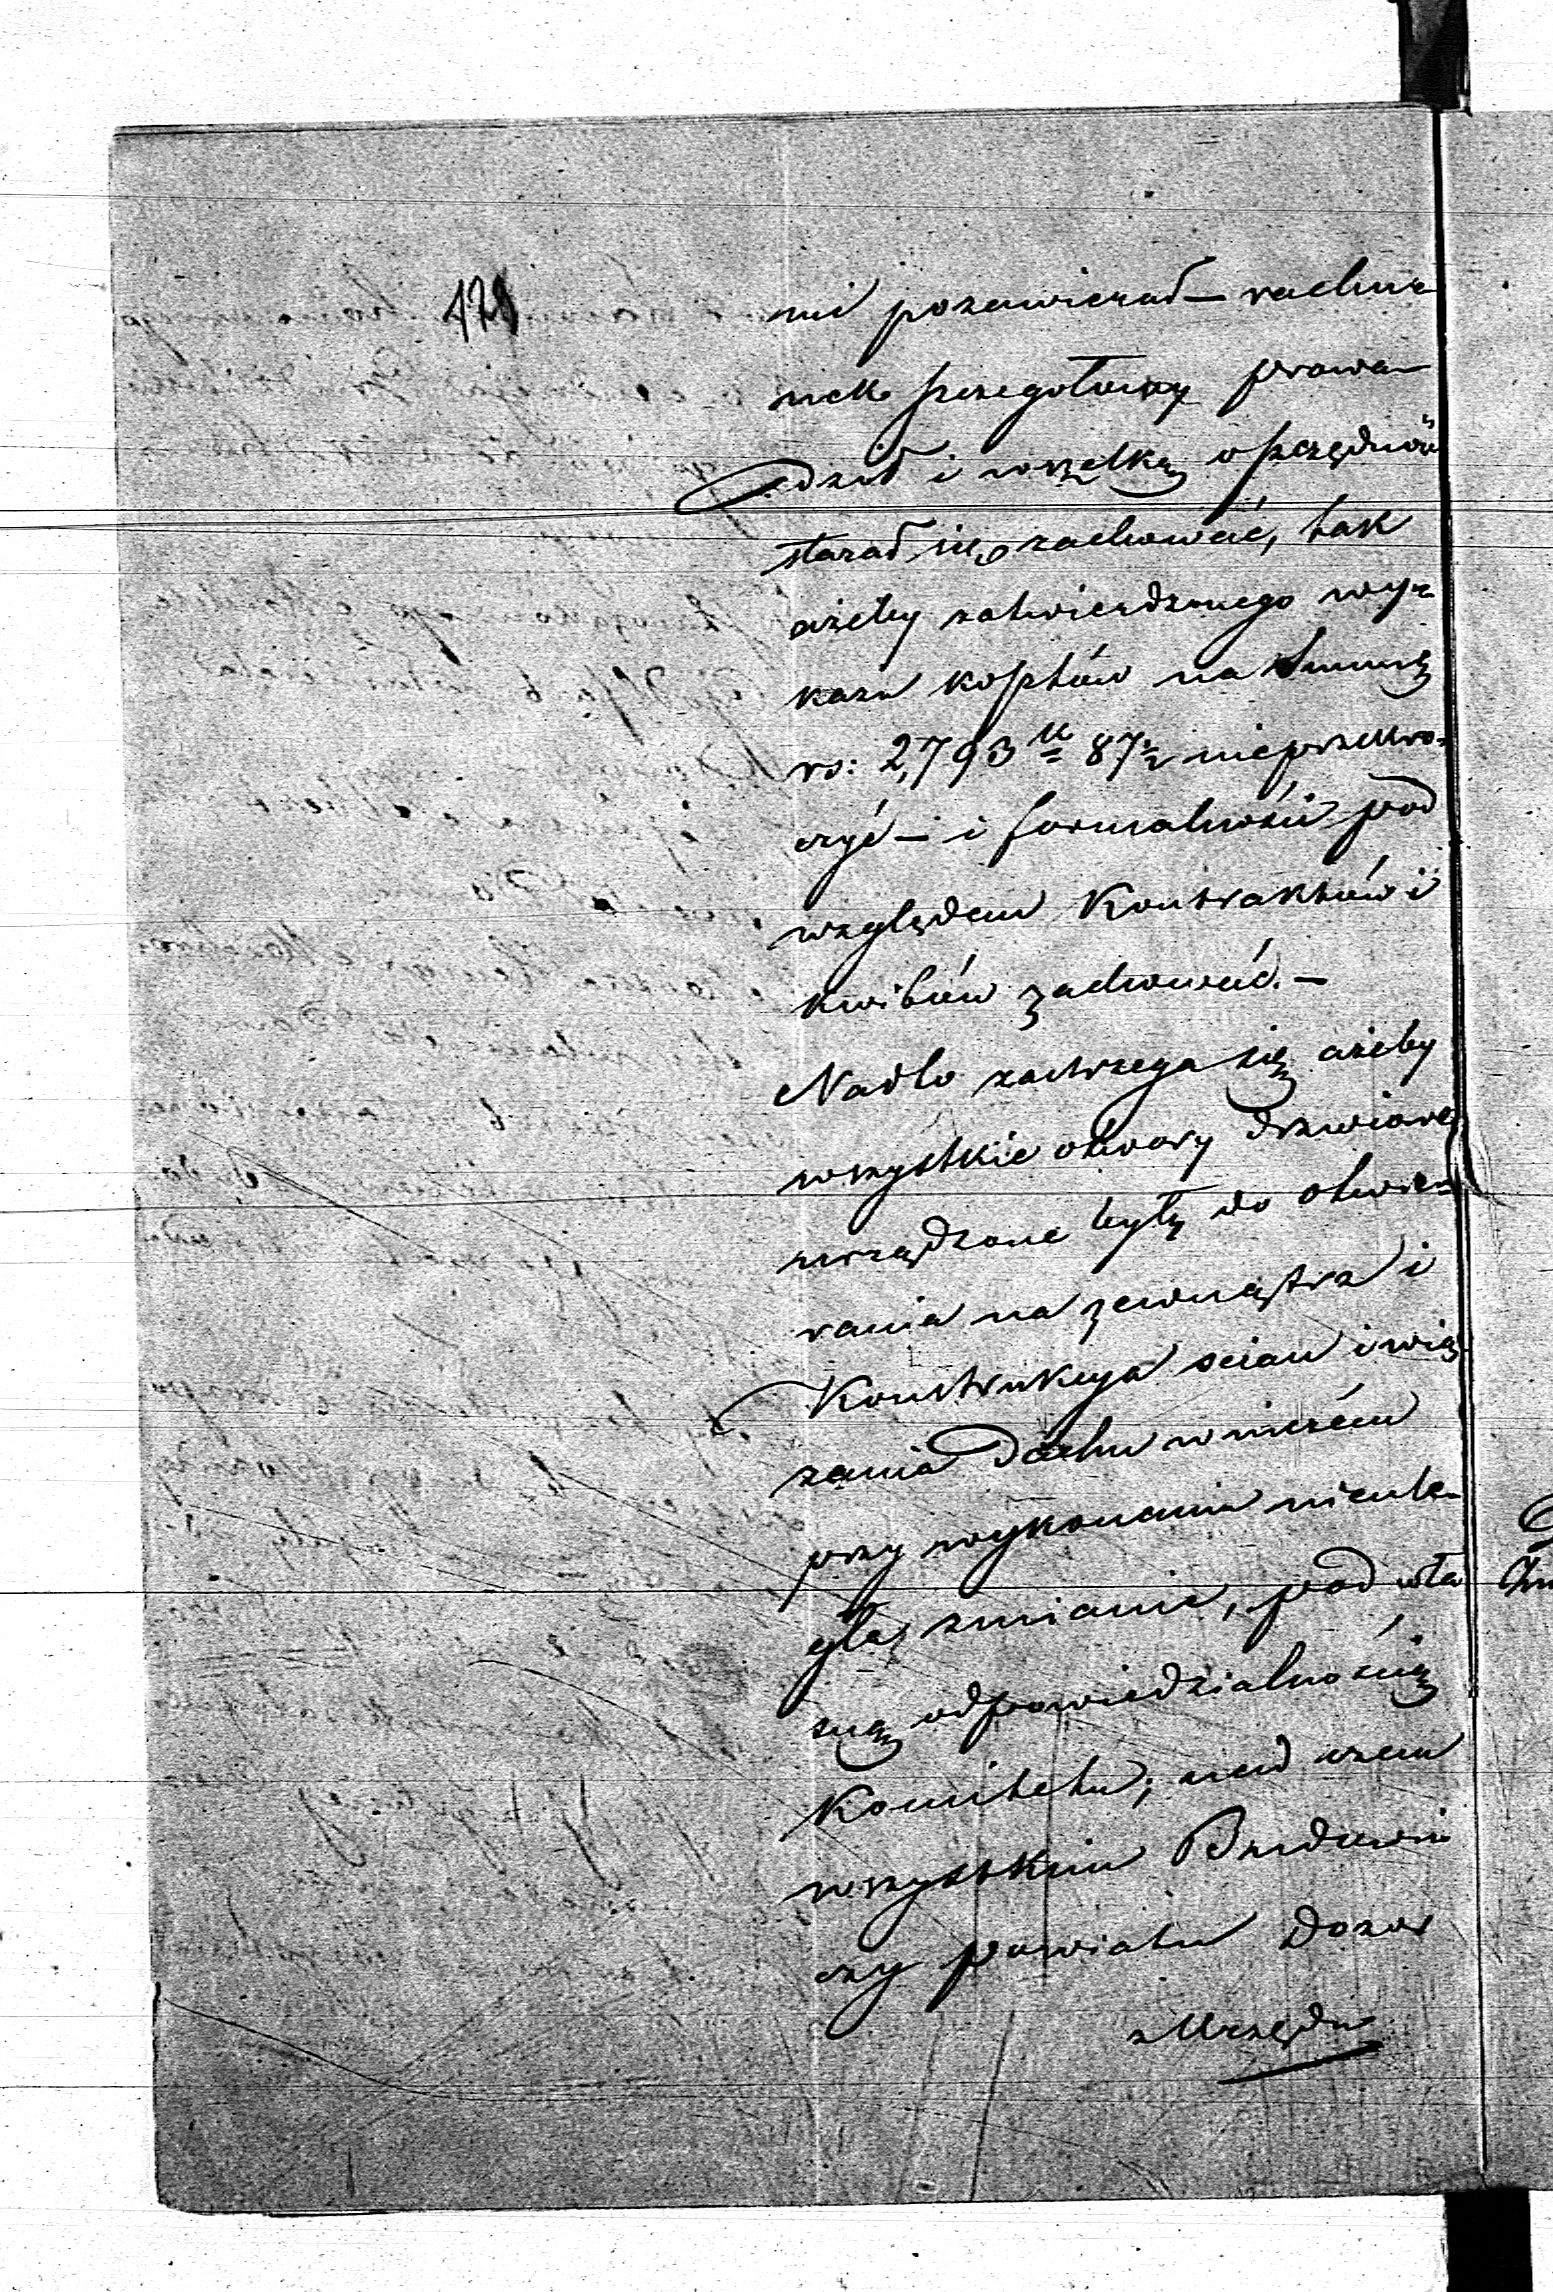 178
mi pozawierał – rachu-
nek szczegołowy prowa-
dził i wszelką oszczędność
starał się zachować, tak
ażeby zatwierdzonego wy-
kazu kosztów na Summę
rs: 2,793 k 87½ nieprzekro-
czyć – i formalności pod
względem Kontraktów i
kwitów zachować. –
Nadto zastrzega się ażeby
wszystkie otwory drzwiowe
urządzone były do otwie-
rania na zewnątrz i
Konstrukcya scian i wią-
zania dachu w niczém
przy wykonaniu nieule-
gła zmianie, pod wła
sną odpowiedzialnością
Komitetu; nad czem
wszystkim Budowni
czy powiatu dozór
z Urzędu